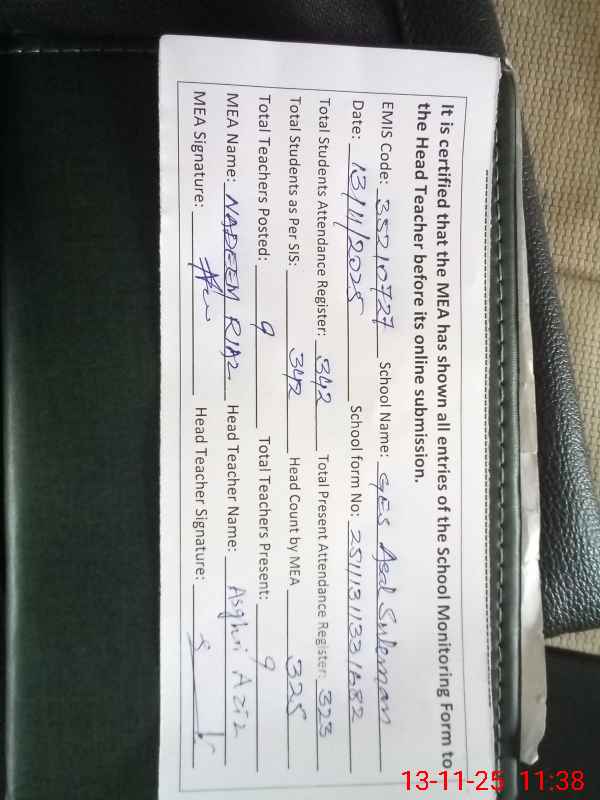 It is certified that the MEA has shown all entries of the School Monitoring Form to
the Head Teacher before its online submission.
EMIS Code: 35210727 School Name: GES Asal Suleman
Date: 13/11/2025 School form No:
Total Students Attendance Register: 342 Total Present Attendance Register: 323
Total Students as Per SIS: 342 Head Count by MEA 325
Total Teachers Posted: 9 Total Teachers Present: 9
MEA Name: NADEEM RIAZ Head Teacher Name: Asghri Aziz
MEA Signature: Head Teacher Signature:
13-11-25 11:38